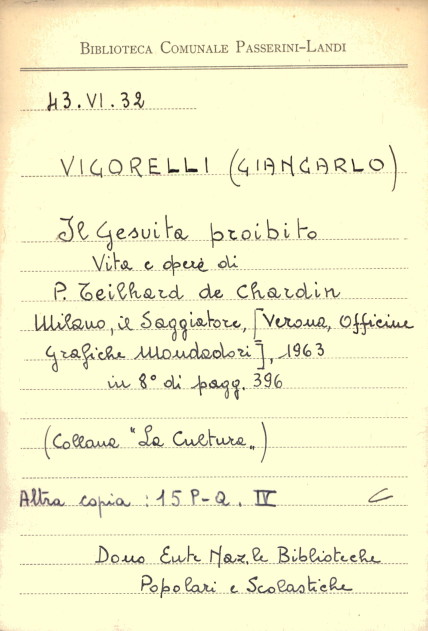 BIBLIOTECA COMUNALE PASSERINI-LANDI
43.VI.32
VIGORELLI (GIANCARLO)
Il Gesuita proibito
Vita e opere di
P. Teilhard de Chardin
Milano, il Saggiatore, [Verona, Officine
Grafiche Mondadori], 1963
in 8° di pagg. 396
(Collana "La Cultura„)
Altra copia : 15 P-Q. IV
Dono Ente Naz.le Biblioteche
Popolari e Scolastiche